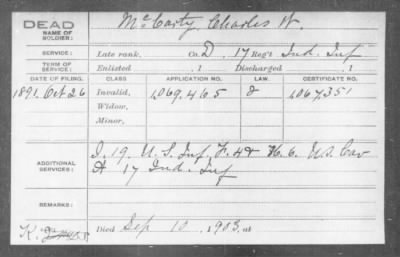 DEAD
NAME OF SOLDIER: McCarty, Charles W.
SERVICE: Late rank, Co. D, 17 Reg't Ind. Inf
TERM OF SERVICE: Enlisted , 1 Discharged , 1
DATE OF FILING. CLASS APPLICATION NO. LAW. CERTIFICATE NO.
1891 Oct 26 Invalid, 1,069,465 1,067,351
Widow,
Minor,
ADDITIONAL SERVICES: I. 19. U.S. Inf. F. 4 & K. 6. U.S. Cav
A 17 Ind. Inf
REMARKS:
K.
Died Sep 10, 1903, at